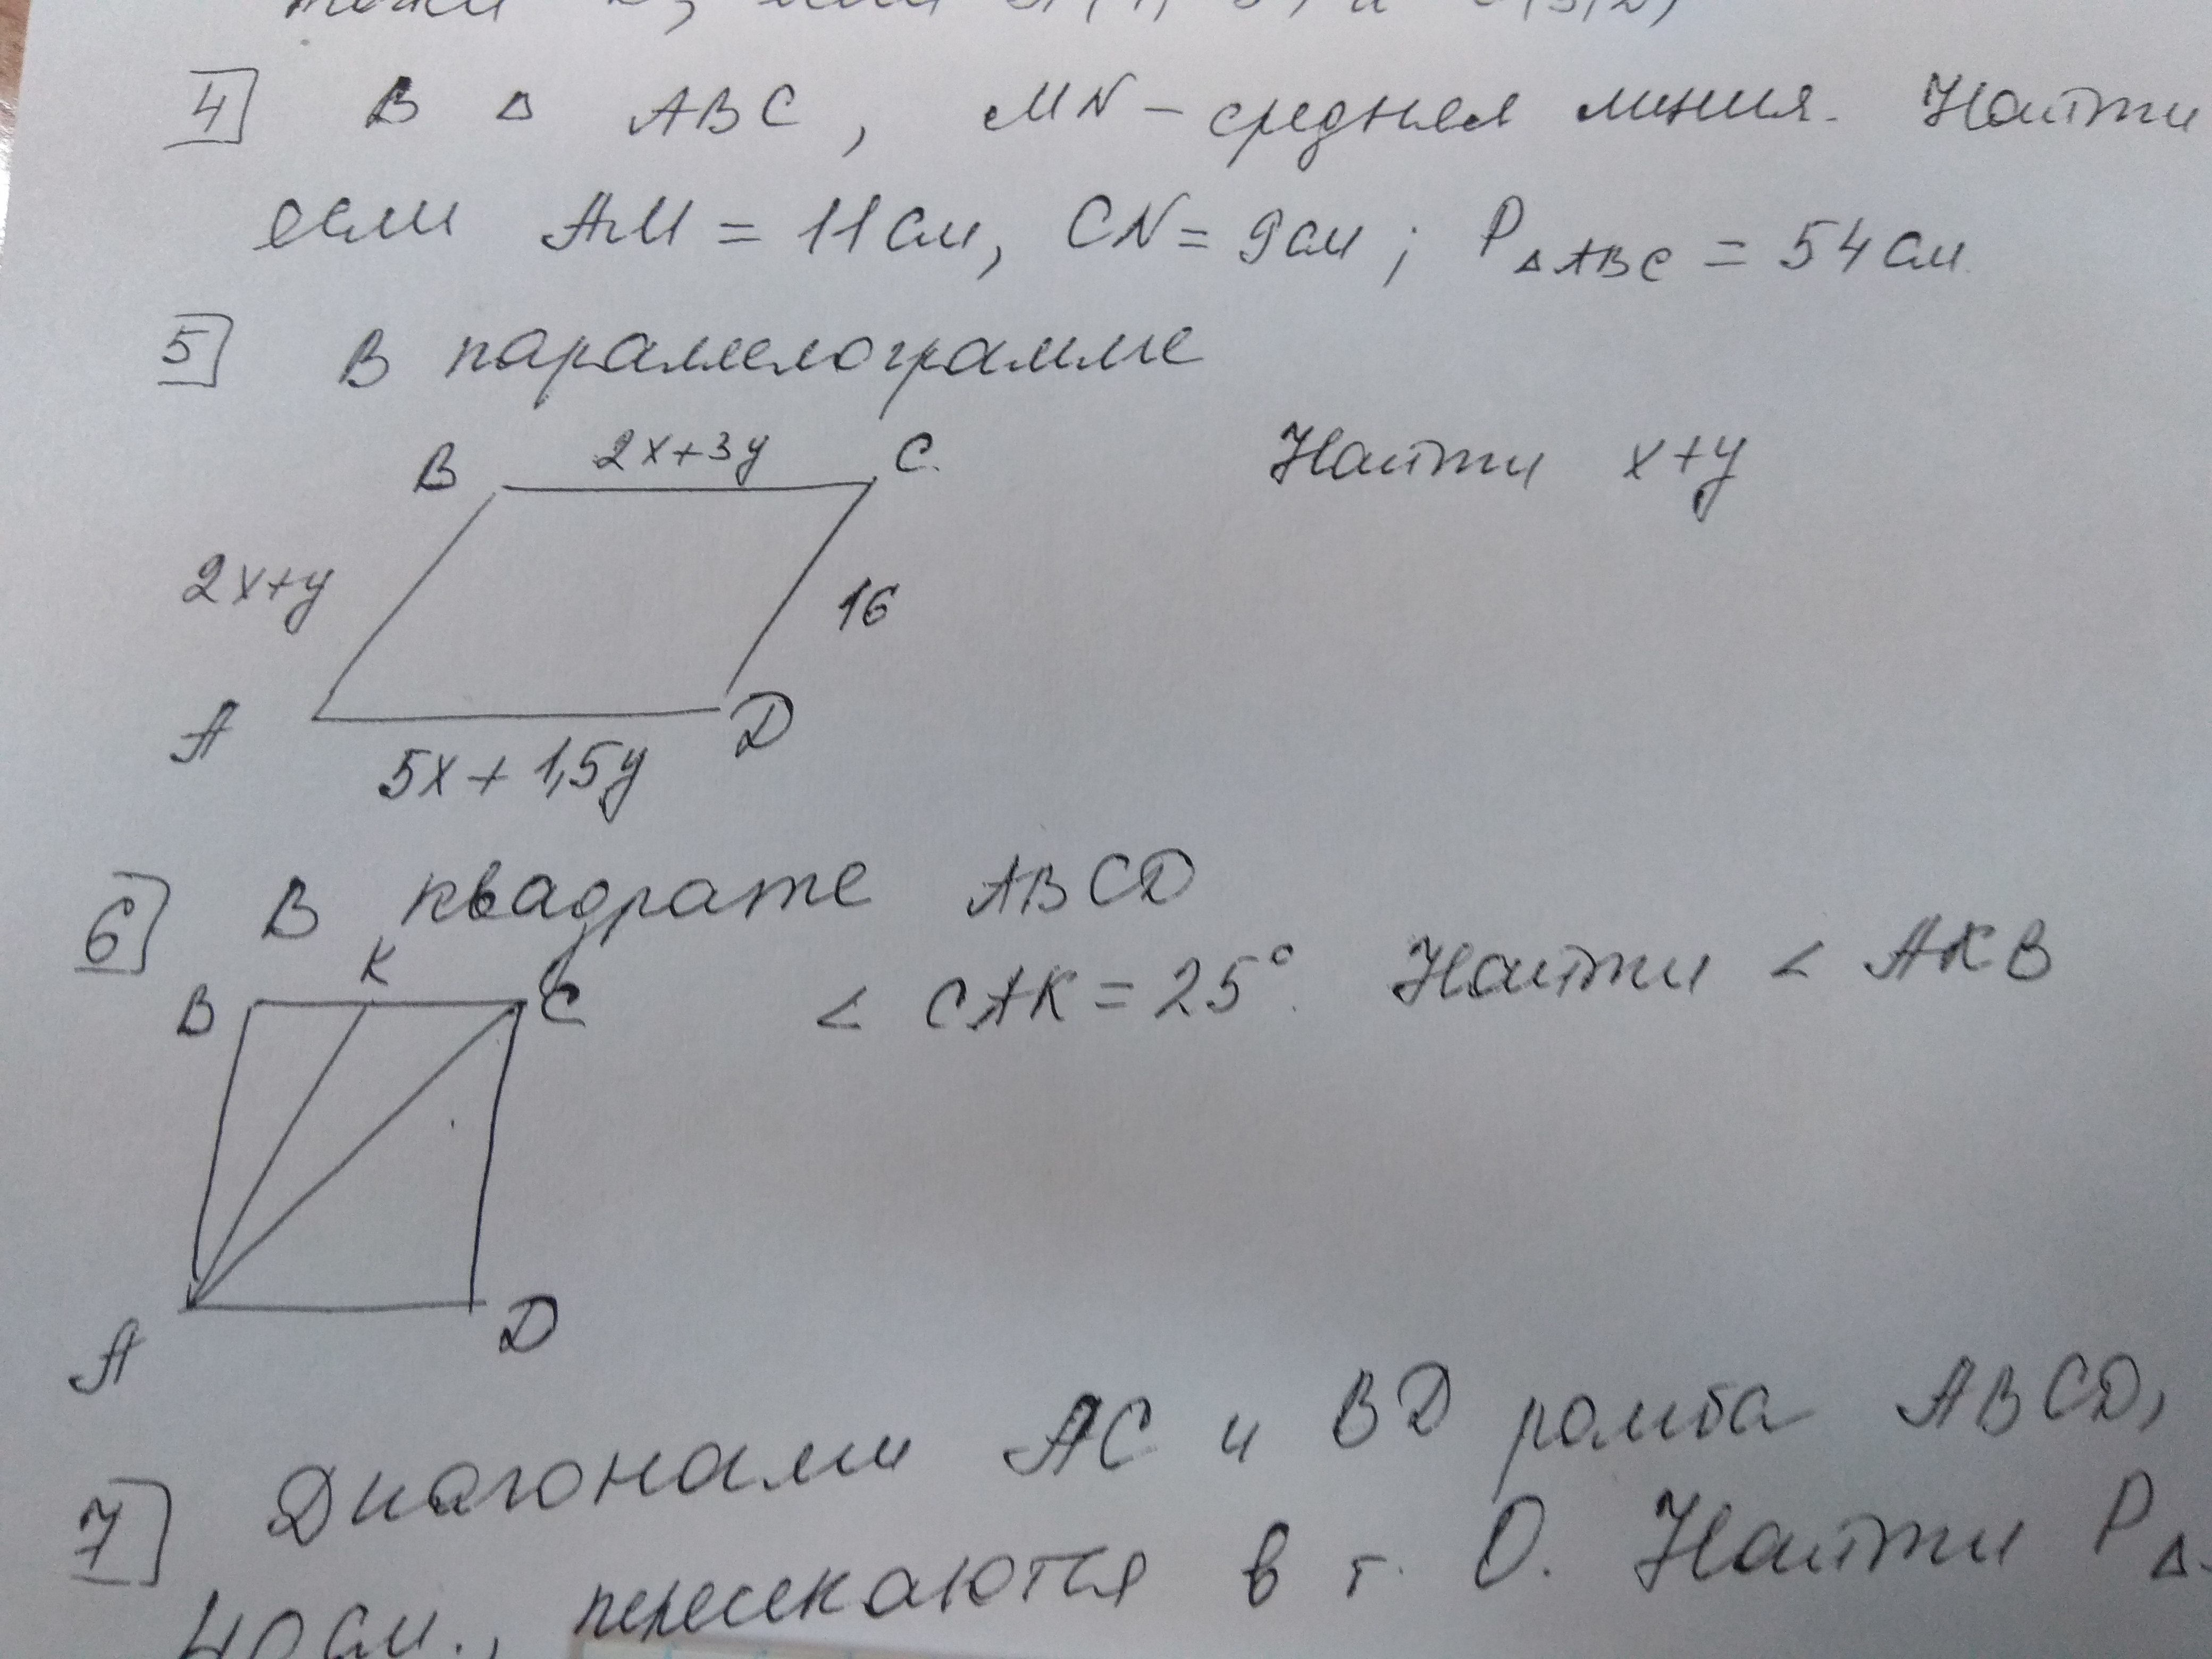 4 В Δ ABC, MN – средняя линия. Найти
если AM = 11 см, CN = 9 см; P Δ ABC = 54 см
5 В параллелограмме
B 2x+3y C Найти x+y
2x+y 16
A D
5x + 1,5y
6 В квадрате ABCD
K
B C < CAK = 25°. Найти < AKB
A D
7 Диагонали AC и BD ромба ABCD,
40 см., пересекаются в т. О. Найти P Δ